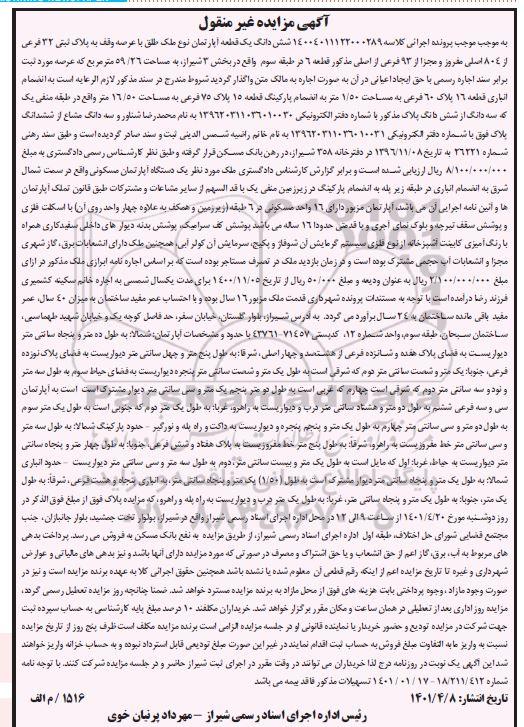 آگهی مزایده غیر منقول
به موجب موجب پرونده اجرائی کلاسه ۱۴۰۰۴۰۱۱۱۲۲۰۰۰۲۸۹ شش دانگ یک قطعه آپارتمان نوع ملک طلق با عرصه وقف به پلاک ثبتی ۳۲ فرعی
از ۸۰۴ اصلی مفروز و مجزا از ۹۳ فرعی از اصلی مذکور قطعه ۶ در طبقه سوم واقع در بخش ۳ شیراز، به مساحت ۵۹/۲۶ مترمربع که عرصه مورد ثبت
برابر سند اجاره رسمی با حق ایجاد اعیانی در آن به صورت اجاره به مالک متن واگذار گردید شروط مندرج در سند مذکور لازم الرعایه است به انضمام
انباری قطعه ۱۶ پلاک ۶۰ فرعی به مساحت ۱/۵۰ متر به انضمام پارکینگ قطعه ۱۵ پلاک ۷۵ فرعی به مساحت ۱۶/۵۰ متر واقع در طبقه منفی یک
که سه دانگ از شش دانگ پلاک مذکور با شماره دفتر الکترونیکی ۱۳۹۶۲۰۳۱۱۰۳۶۰۱۰۰۳۰ به نام محمدرضا شناور و سه دانگ مشاع از ششدانگ
پلاک فوق با شماره دفتر الکترونیکی ۱۳۹۶۲۰۳۱۱۰۳۶۰۱۰۰۳۱ به نام خانم راضیه شمس الدینی ثبت و سند صادر گردیده است و طبق سند رهنی
شماره ۲۶۲۲۱ به تاریخ ۱۳۹۶/۱۱/۰۸ در دفترخانه ۳۵۸ شیراز، در رهن بانک مسکن قرار گرفته و طبق نظر کارشناس رسمی دادگستری به مبلغ
۸/۱۰۰/۰۰۰/۰۰۰ ریال ارزیابی شده است و برابر گزارش کارشناس دادگستری ملک مورد نظر یک دستگاه آپارتمان مسکونی واقع در سمت شمال
شرق به انضمام انباری در طبقه زیر پله به انضمام پارکینگ در زیرزمین منفی یک با قدالسهم از سایر مشاعات و مشترکات طبق قانون تملک آپارتمان
ها و آئین نامه اجرایی آن می باشد، آپارتمان مزبور دارای ۱۶ واحد مسکونی در ۶ طبقه (زیرزمین و همکف به علاوه چهار واحد روی آن) با اسکلت فلزی
و پوشش سقف تیرچه و بلوک نمای آجری و با قدمتی حدودا ۱۶ ساله می باشد پوشش کف سرامیک، پوشش بدنه دیوار های داخلی سفیدکاری همراه
با رنگ آمیزی کابینت آشپزخانه از نوع فلزی سیستم گرمایش آن شوفاژ و پکیج، سرمایش آن کولر آبی، همچنین ملک دارای انشعابات برق، گاز شهری
مجزا و انشعابات آب حجمی مشترک بوده است و در زمان بازدید ملک در تصرف مستاجر بوده است که بر اساس اجاره نامه ابرازی ملک مذکور در ازای
مبلغ ۲/۱۰۰/۰۰۰/۰۰۰ ریال به عنوان ودیعه و مبلغ ۵۰/۰۰۰ ریال از تاریخ ۱۴۰۰/۱۱/۰۵ برای مدت یکسال شمسی به اجاره خانم سکینه کشمیری
فرزند رضا درآمده است با توجه به مستندات پرونده شهرداری قدمت ملک مزبور ۱۶ سال بوده و با احتساب عمر مفید ساختمان به میزان ۴۰ سال، عمر
مفید باقی مانده ساختمان به ۲۴ سال برآورد می گردد. به آدرس شیراز، بلوار گلستان، خیابان سفر، حد فاصل کوچه یک و خیابان شهید طهماسبی،
ساختمان سبحان، طبقه سوم، واحد شماره ۱۲، کدپستی ۷۱۴۵۷-۴۳۷۶۱ با حدود و مشخصات آپارتمان: شمالا: به طول ده متر و پنجاه سانتی متر
دیواریست به فضای پلاک هفده و شانزده فرعی از هشتصد و چهار اصلی، شرقا: به طول پنج متر و چهل سانتی متر دیواریست به فضای پلاک نوزده
فرعی، جنوبا: یک متر و شصت سانتی متر دوم که شرقی است به طول یک متر و شصت سانتی متر پنجره دیواریست به فضای حیاط سوم به طول سه متر
و نود و سه سانتی متر دوم که شرقی است چهارم که غربی است به طول دو متر پنجم یک متر و سی سانتی متر دیوار مشترک است است به آپارتمان
سی و سه فرعی ششم به طول دو متر و هشتاد سانتی متر درب و دیواریست به راهرو، غربا: به طول یک متر دوم که جنوبی است به طول یک متر سوم
به طول دو متر و سی سانتی متر چهارم به طول یک متر و پنجم پنجره و دیواریست به داکت و راه پله و نورگیر - حدود پارکینگ شمالا: به طول سه متر
و سی سانتی متر خط مفروزیست به راهرو، شرقا: به طول پنج متر خط مفروزیست به پلاک هفتاد و شش فرعی، جنوبا: به طول چهار متر و پنجاه سانتی
متر دیواریست به حیاط، غربا: اول که مایل است به طول یک متر و بیست سانتی متر، دوم به طول سه متر و سی سانتی متر دیواریست - حدود انباری
شمالا: به طول یک متر و پنجاه سانتی متر دیوار مشترک است به طول (۱/۵۰) یک متر و پنجاه سانتی متر، به انباری پنجاه و هشت فرعی، شرقا: به طول
یک متر، جنوبا: به طول یک متر و پنجاه سانتی متر، غربا: به طول یک متر درب و دیواریست به راه پله و راهرو، که مزایده پلاک فوق از مبلغ فوق الذکر در
روز دوشنبه مورخ ۱۴۰۱/۴/۲۰ از ساعت ۹ الی ۱۲ در محل اداره اجرای اسناد رسمی شیراز واقع در شیراز، بولوار تخت جمشید، بلوار جانبازان، جنب
مجتمع قضایی شورای حل اختلاف، طبقه اول اداره اجرای اسناد رسمی شیراز، از طریق مزایده به نفع بانک مسکن به فروش می رسد. پرداخت بدهی
های مربوط به آب، برق، گاز اعم از حق انشعاب و یا حق اشتراک و مصرف در صورتی که مورد مزایده دارای آنها باشد و نیز بدهی های مالیاتی و عوارض
شهرداری و غیره تا تاریخ مزایده اعم از اینکه رقم قطعی آن معلوم شده یا نشده باشد همچنین حقوق اجرائی کلا به عهده برنده مزایده است و نیز در
صورت وجود مازاد، وجوه پرداختی بابت هزینه های فوق از محل مازاد به برنده مزایده مسترد خواهد شد. ضمنا چنانچه روز مزایده تعطیل رسمی گردد،
مزایده روز اداری بعد از تعطیلی در همان ساعت و مکان مقرر برگزار خواهد شد. خریداران مکلفند ۱۰ درصد مبلغ پایه کارشناسی به حساب سپرده ثبت
جهت شرکت در مزایده تودیع و حضور خریدار یا نماینده قانونی او در جلسه مزایده الزامی است برنده مزایده مکلف است ظرف پنج روز از تاریخ مزایده
نسبت به واریز مابه التفاوت مبلغ فروش به حساب ثبت اقدام نمایند در غیر این صورت مبلغ تودیعی قابل استرداد نبوده و به حساب خزانه واریز خواهند
شد این آگهی یک نوبت در روزنامه درج لذا خریداران می توانند در وقت مقرر در اجرای ثبت شیراز حاضر و در جلسه مزایده شرکت کنند. با توجه نامه
شماره ۱۸/۲۱۱/۴۱۲ - ۱۷ / ۰۱ / ۱۴۰۱ تسهیلات مذکور فاقد بیمه می باشد
تاریخ انتشار: ۱۴۰۱/۴/۸
۱۵۱۶ / م الف
رئیس اداره اجرای اسناد رسمی شیراز - مهرداد پرنیان خوی